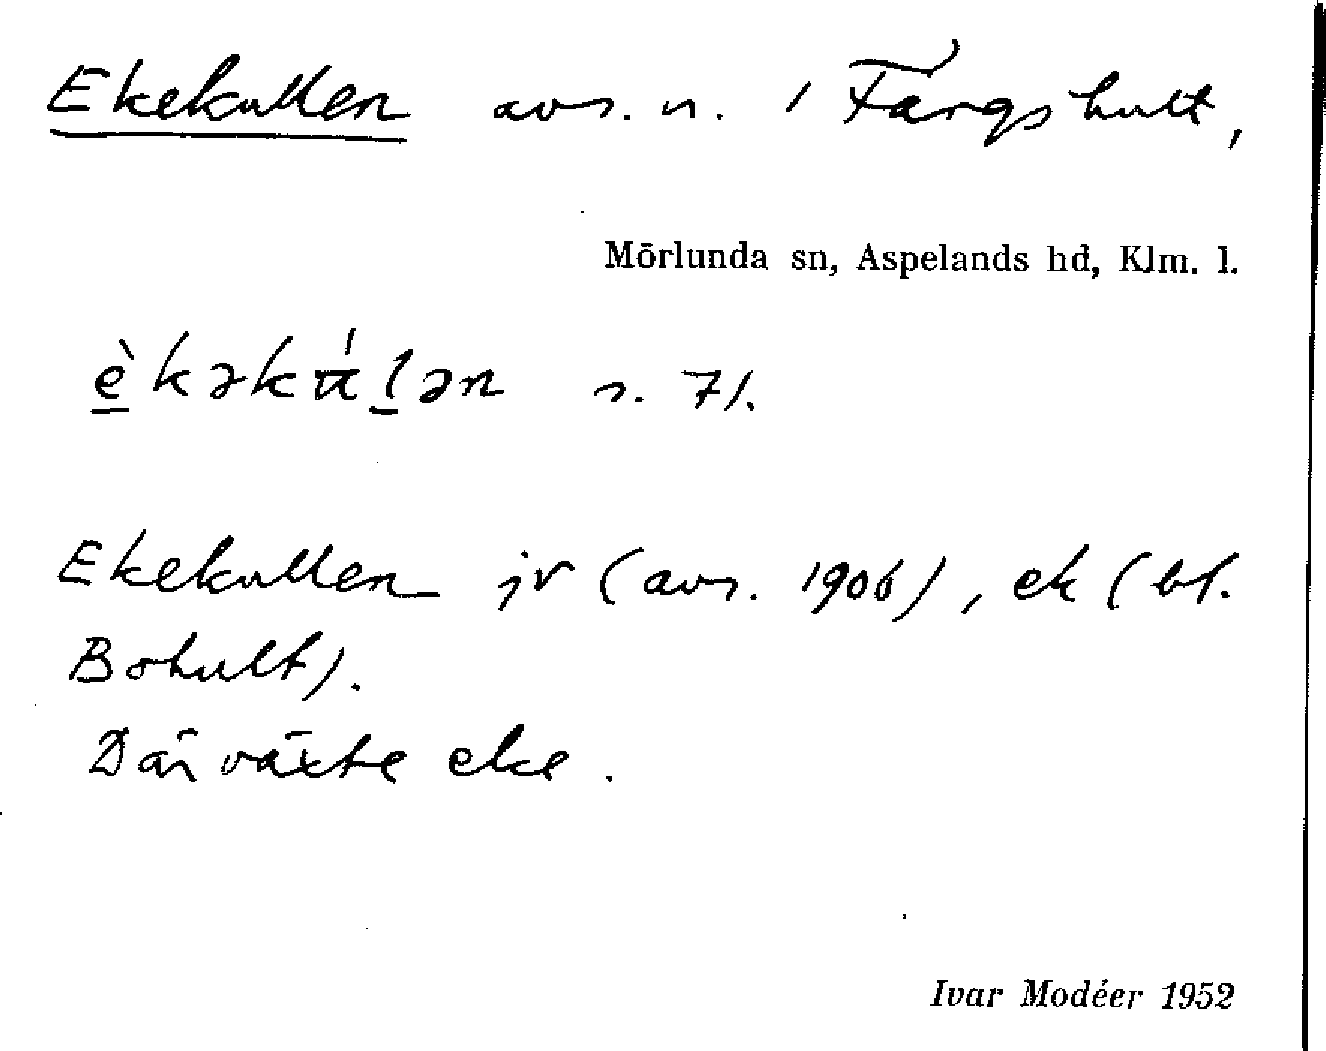 Ekekullen avs. n. i Färgshult,
Mörlunda sn, Aspelands hd, Klm. l.
s. 71.
Ekekullen jr (avs. 1906), ek (bl.
Bohult).
Där växte eke.
Ivar Modéer 1952